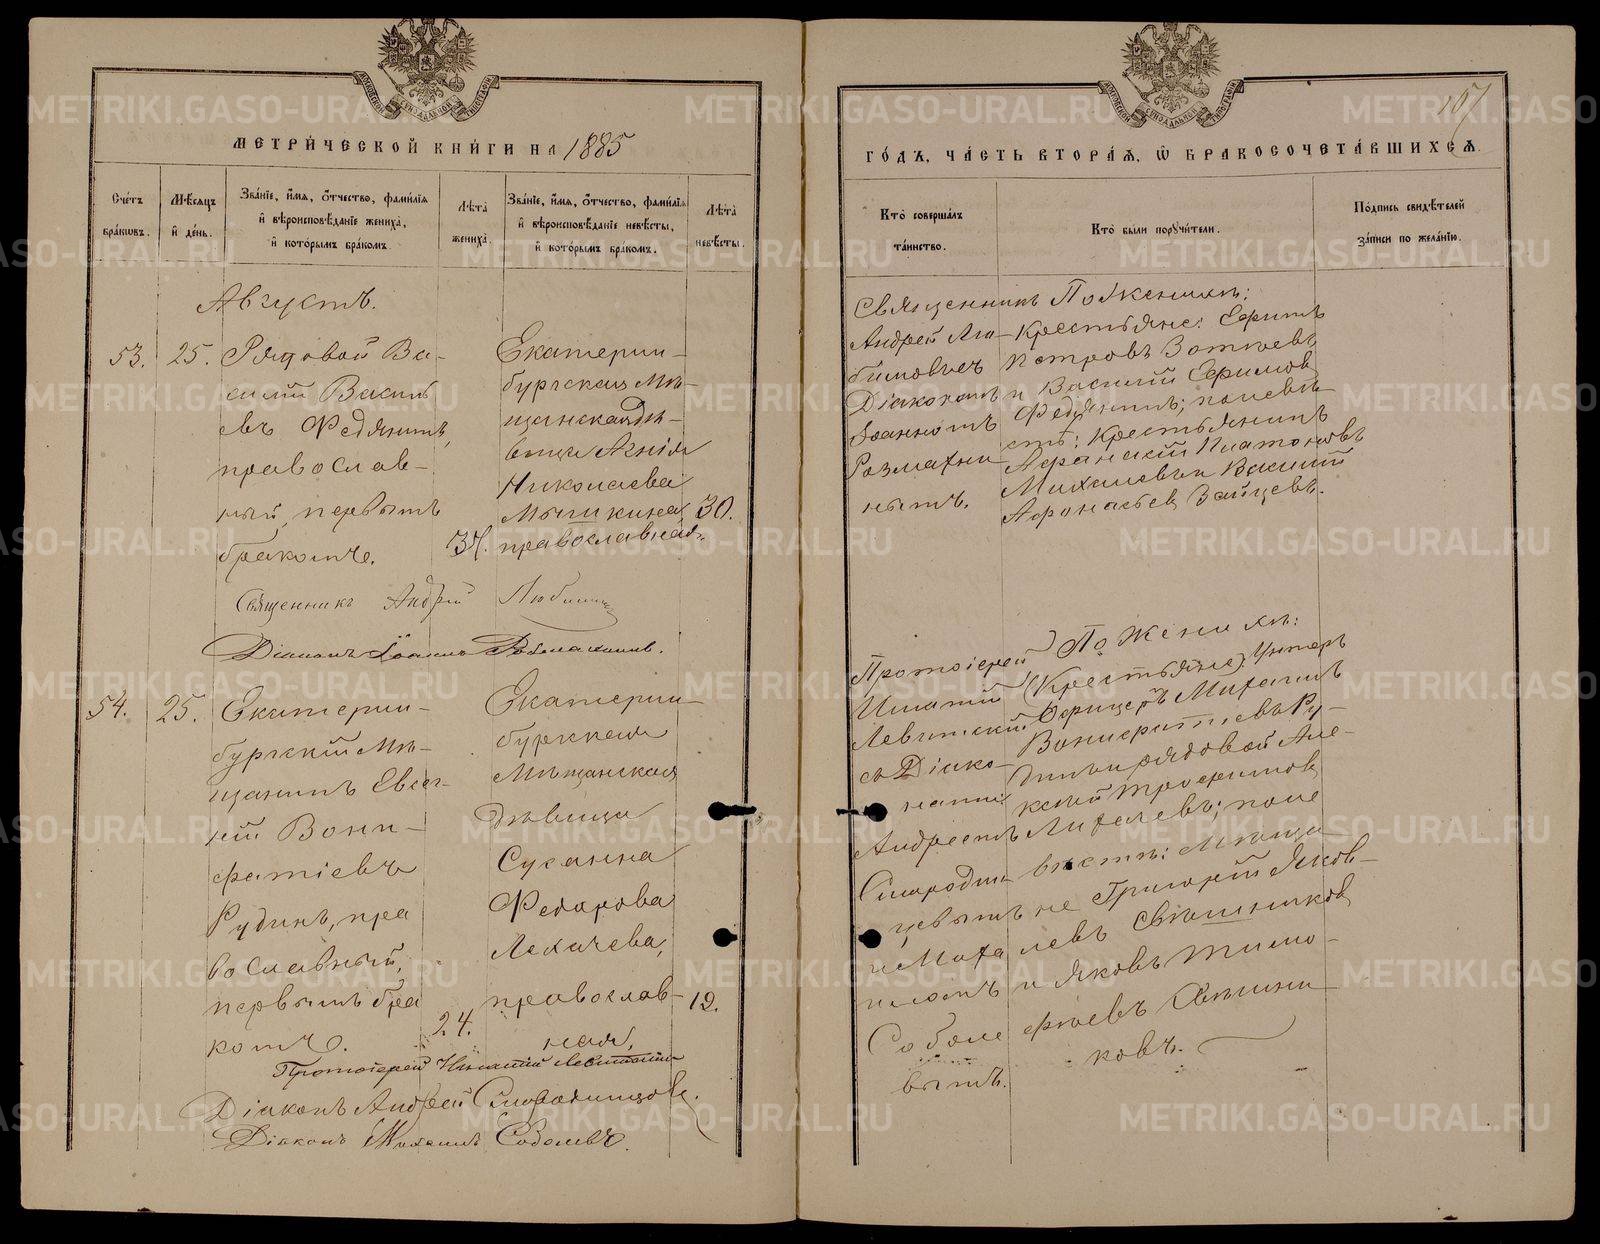 МЕТРИ́ЧЕСКОЙ КНИ́ГИ НА 1885
Сче́тъ бра́кωвъ.
Мѣ́сяцъ и҆ де́нь.
Зва́нїе, и҆́мѧ, ѻ҆́тчество, фами́лїѧ и҆ вѣроисповѣ́данїе жениха̀, и҆ кото́рымъ бра́комъ.
Лѣ́та жениха̀.
Зва́нїе, и҆́мѧ, ѻ҆́тчество, фами́лїѧ и҆ вѣроисповѣ́данїе невѣ́сты, и҆ кото́рымъ бра́комъ.
Лѣ́та невѣ́сты.
Августъ.
53.
25.
Рядовой Ва-
силий Василь
евъ Федянинъ,
православ-
ный, первымъ
бракомъ.
37.
Екатерин-
бургская мѣ-
щанская дѣ-
вица Агнія
Николаева
Мышкина,
православная
30.
Священникъ Андрей Любимовъ
Діаконъ Іоаннъ Розмахнинъ.
54.
25.
Екатерин-
бургскій мѣ-
щанинъ Евсег-
ній Вони-
фатіевъ
Рудинъ, пра
вославный,
первымъ бра
комъ.
24.
Екатерин-
бургская
мѣщанская
дѣвица
Сусанна
Федорова
Лехачева,
православ-
ная,
19.
Протоіерей Игнатій Левитскій
Діаконъ Андрей Смородинцовъ.
Діаконъ Михаилъ Соболевъ.
107
ГО́ДЪ, ЧА́СТЬ ВТОРА́Ѧ, Ѡ҆ БРАКОСОЧЕТА́ВШИХСѦ.
Кто̀ соверша́лъ та́инство.
Кто̀ бы́ли порꙋчи́тели.
По́дпись свидѣ́телей за́писи по жела́нїю.
Священникъ
Андрей Лю-
бимовъ съ
Діакономъ
Іоанномъ
Розмахни
нымъ.
По женихѣ:
Крестьяне: Ефимъ
Петровъ Зотѣевъ
и Василій Ефимовъ
Федянинъ; по невѣ-
стѣ: Крестьянинъ
Афанасій Платоновъ
Михалевъ и Василій
Афонасьевъ Зайцевъ.
Протоіерей
Игнатій
Левитскій
съ Діако-
нами
Андреемъ
Смородин
цевымъ
и Миха
иломъ
Соболе
вымъ.
По женихѣ:
(Крестьяне) Унтеръ
Офицеръ Михаилъ
Вонифатіевъ Ру-
динъ и рядовой Але-
ксѣй Трофимовъ
Лихачевъ; по не
вѣстѣ: мѣща
не Григорій Яков-
левъ Свѣшниковъ
и Яковъ Тимо-
фѣевъ Свѣшни
ковъ.
METRIKI.GASO-URAL.RU